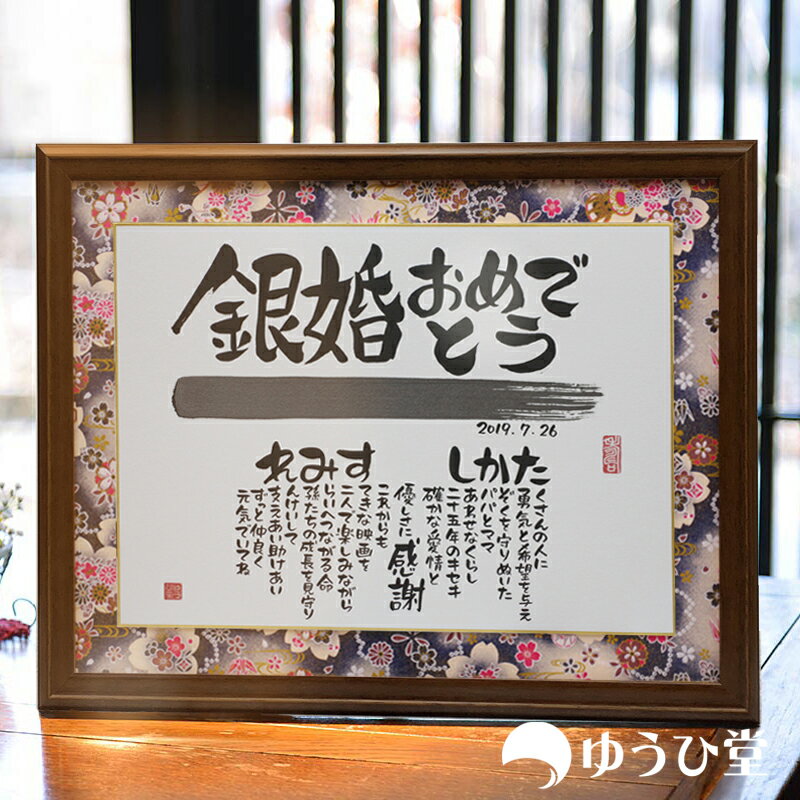 銀婚おめで
とう
2019.7.26
たくさんの人に
勇気と希望を与え
かぞくを守りぬいた
パパとママ
しあわせなくらし
二十五年のキセキ
確かな愛情と
優しさに感謝
これからも
すてきな映画を
二人で楽しみながら
みらいへつながる命
孫たちの成長を見守り
れんけいして
支えあい助けあい
ずっと仲良く
元気でいてね
ゆうひ堂